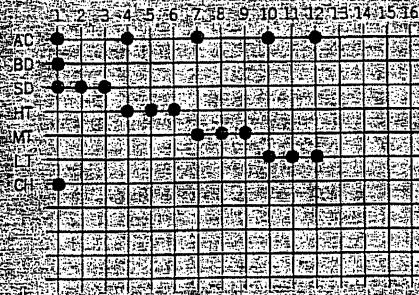 1 2 3 4 5 6 7 8 9 10 11 12 13 14 15 16
AC
BD
SD
HT
MT
LT
CH